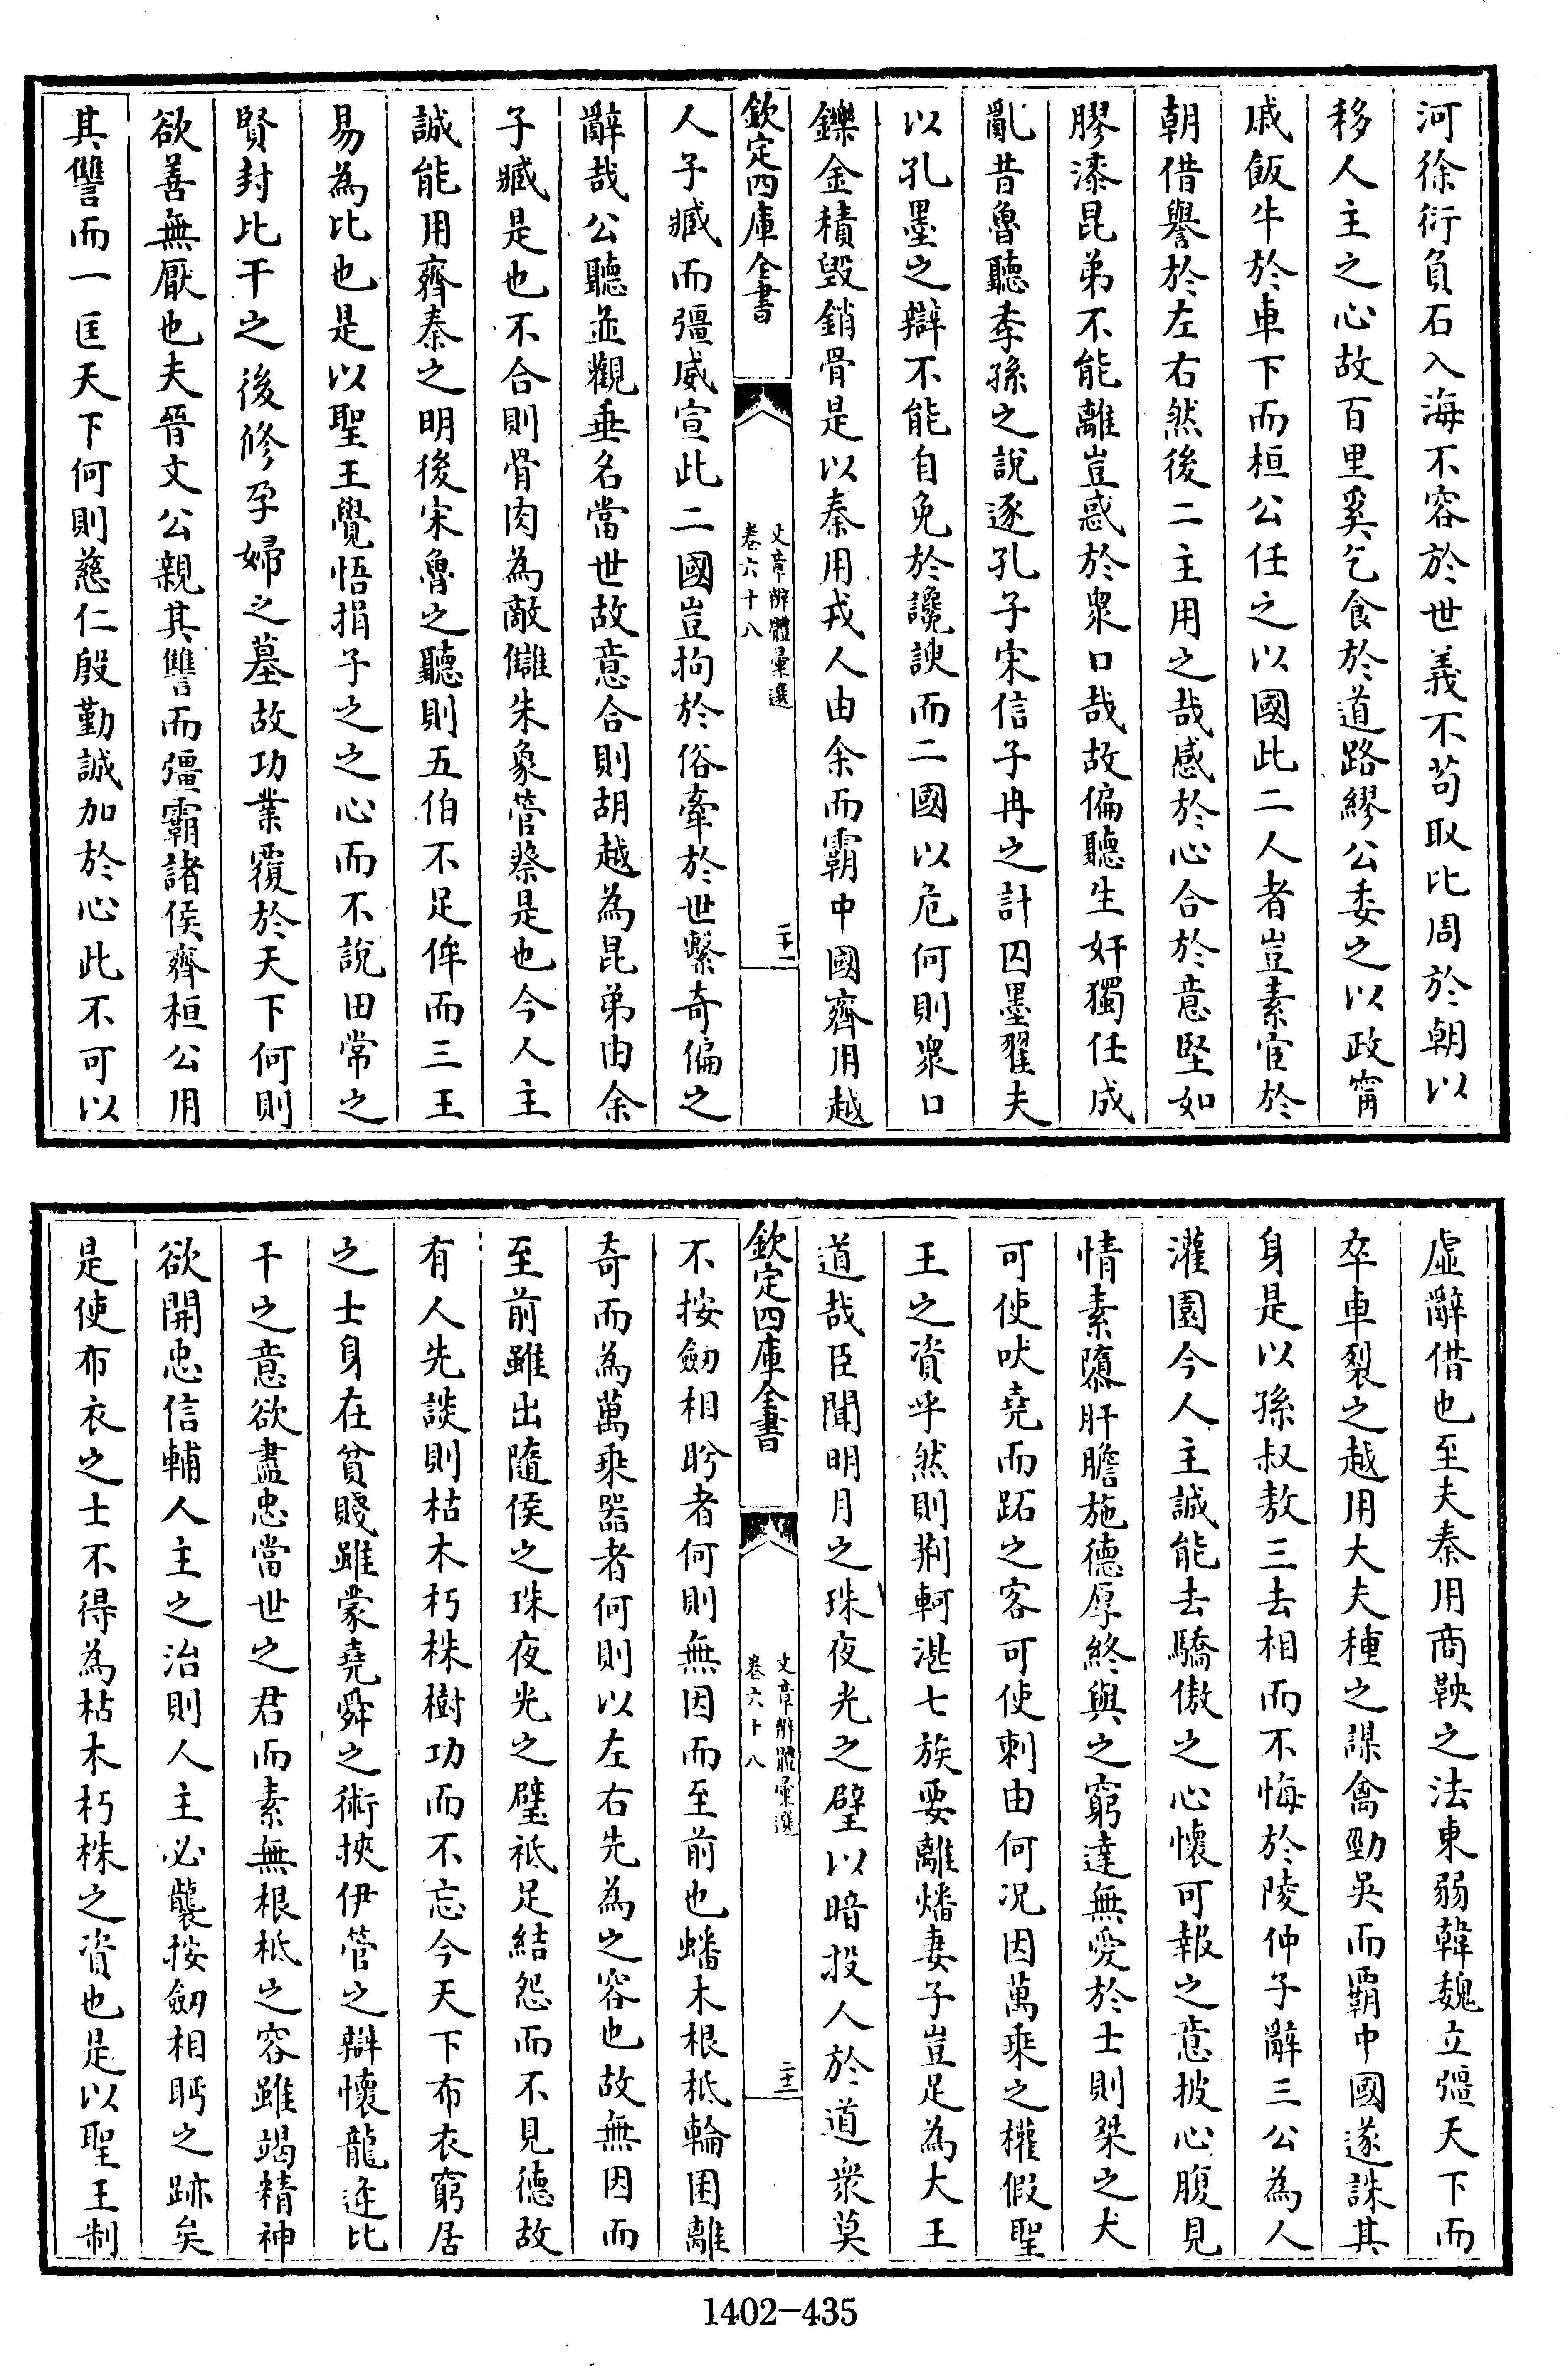 河徐衍負石入海不容於世義不苟取比周於朝以
移人主之心故百里奚乞食於道路繆公委之以政甯
戚飯牛於車下而桓公任之以國此二人者豈素宦於
朝借譽於左右然後二主用之哉感於心合於意堅如
膠漆昆弟不能離豈惑於衆口哉故偏聽生奸獨任成
亂昔魯聽季孫之說逐孔子宋信子冉之計囚墨翟夫
以孔墨之辯不能自免於讒諛而二國以危何則衆口
鑠金積毀銷骨是以秦用戎人由余而霸中國齊用越
欽定四庫全書
文章辨體彙選
卷六十八
二十一
人子臧而彊威宣此二國豈拘於俗牽於世繫奇偏之
辭哉公聽並觀垂名當世故意合則胡越為昆弟由余
子臧是也不合則骨肉為敵讎朱象管蔡是也今人主
誠能用齊秦之明後宋魯之聽則五伯不足侔而三王
易為比也是以聖王覺悟捐子之之心而不說田常之
賢封比干之後修孕婦之墓故功業覆於天下何則
欲善無厭也夫晉文公親其讐而彊霸諸侯齊桓公用
其讐而一匡天下何則慈仁殷勤誠加於心此不可以
虛辭借也至夫秦用商鞅之法東弱韓魏立彊天下而
卒車裂之越用大夫種之謀禽勁吳而霸中國遂誅其
身是以孫叔敖三去相而不悔於陵仲子辭三公為人
灌園今人主誠能去驕傲之心懷可報之意披心腹見
情素隳肝膽施德厚終與之窮達無愛於士則桀之犬
可使吠堯而跖之客可使刺由何况因萬乘之權假聖
王之資乎然則荆軻湛七族要離燔妻子豈足為大王
道哉臣聞明月之珠夜光之璧以暗投人於道衆莫
欽定四庫全書
文章辨體彙選
卷六十八
二十二
不按劒相眄者何則無因而至前也蟠木根柢輪囷離
奇而為萬乘器者何則以左右先為之容也故無因而
至前雖出隨侯之珠夜光之璧祗足結怨而不見德故
有人先談則枯木朽株樹功而不忘今天下布衣窮居
之士身在貧賤雖蒙堯舜之術挾伊管之辯懷龍逄比
干之意欲盡忠當世之君而素無根柢之容雖竭精神
欲開忠信輔人主之治則人主必襲按劒相眄之跡矣
是使布衣之士不得為枯木朽株之資也是以聖王制
1402-435